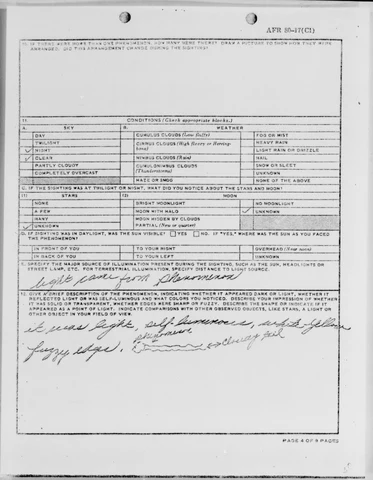 AFR 80-17(C1)
10. IF THERE WERE MORE THAN ONE PHENOMENON, HOW MANY WERE THERE? DRAW A PICTURE TO SHOW HOW THEY WERE
ARRANGED. DID THIS ARRANGEMENT CHANGE DURING THE SIGHTING?
11. CONDITIONS (Check appropriate blocks.)
A. SKY B. WEATHER
DAY CUMULUS CLOUDS (Low fluffy) FOG OR MIST
TWILIGHT CIRRUS CLOUDS (High fleecy or Herring-bone) HEAVY RAIN
NIGHT LIGHT RAIN OR DRIZZLE
CLEAR NIMBUS CLOUDS (Rain) HAIL
PARTLY CLOUDY CUMULONIMBUS CLOUDS (Thunderstorms) SNOW OR SLEET
COMPLETELY OVERCAST UNKNOWN
HAZE OR SMOG NONE OF THE ABOVE
C. IF THE SIGHTING WAS AT TWILIGHT OR NIGHT, WHAT DID YOU NOTICE ABOUT THE STARS AND MOON?
(1) STARS (2) MOON
NONE BRIGHT MOONLIGHT NO MOONLIGHT
A FEW MOON WITH HALO UNKNOWN
MANY MOON HIDDEN BY CLOUDS
UNKNOWN PARTIAL (New or quarter)
D. IF SIGHTING WAS IN DAYLIGHT, WAS THE SUN VISIBLE? YES NO. IF "YES," WHERE WAS THE SUN AS YOU FACED
THE PHENOMENON?
IN FRONT OF YOU TO YOUR RIGHT OVERHEAD (Near noon)
IN BACK OF YOU TO YOUR LEFT UNKNOWN
E. SPECIFY THE MAJOR SOURCE OF ILLUMINATION PRESENT DURING THE SIGHTING, SUCH AS THE SUN, HEADLIGHTS OR
STREET LAMP, ETC. FOR TERRESTRIAL ILLUMINATION, SPECIFY DISTANCE TO LIGHT SOURCE.
light from phenomenon
F. GIVE A BRIEF DESCRIPTION OF THE PHENOMENON, INDICATING WHETHER IT APPEARED DARK OR LIGHT, WHETHER IT
REFLECTED LIGHT OR WAS SELF-LUMINOUS AND WHAT COLORS YOU NOTICED. DESCRIBE YOUR IMPRESSION OF WHETHER
IT WAS SOLID OR TRANSPARENT, WHETHER EDGES WERE SHARP OR FUZZY. DESCRIBE THE SHAPE OR INDICATE IF IT
APPEARED AS A POINT OF LIGHT. INDICATE COMPARISONS WITH OTHER OBSERVED OBJECTS, LIKE STARS, A LIGHT OR
OTHER OBJECT IN YOUR FIELD OF VIEW.
it was light, self luminous, red & yellow
fuzzy edges. phenomenon tail
PAGE 4 OF 9 PAGES